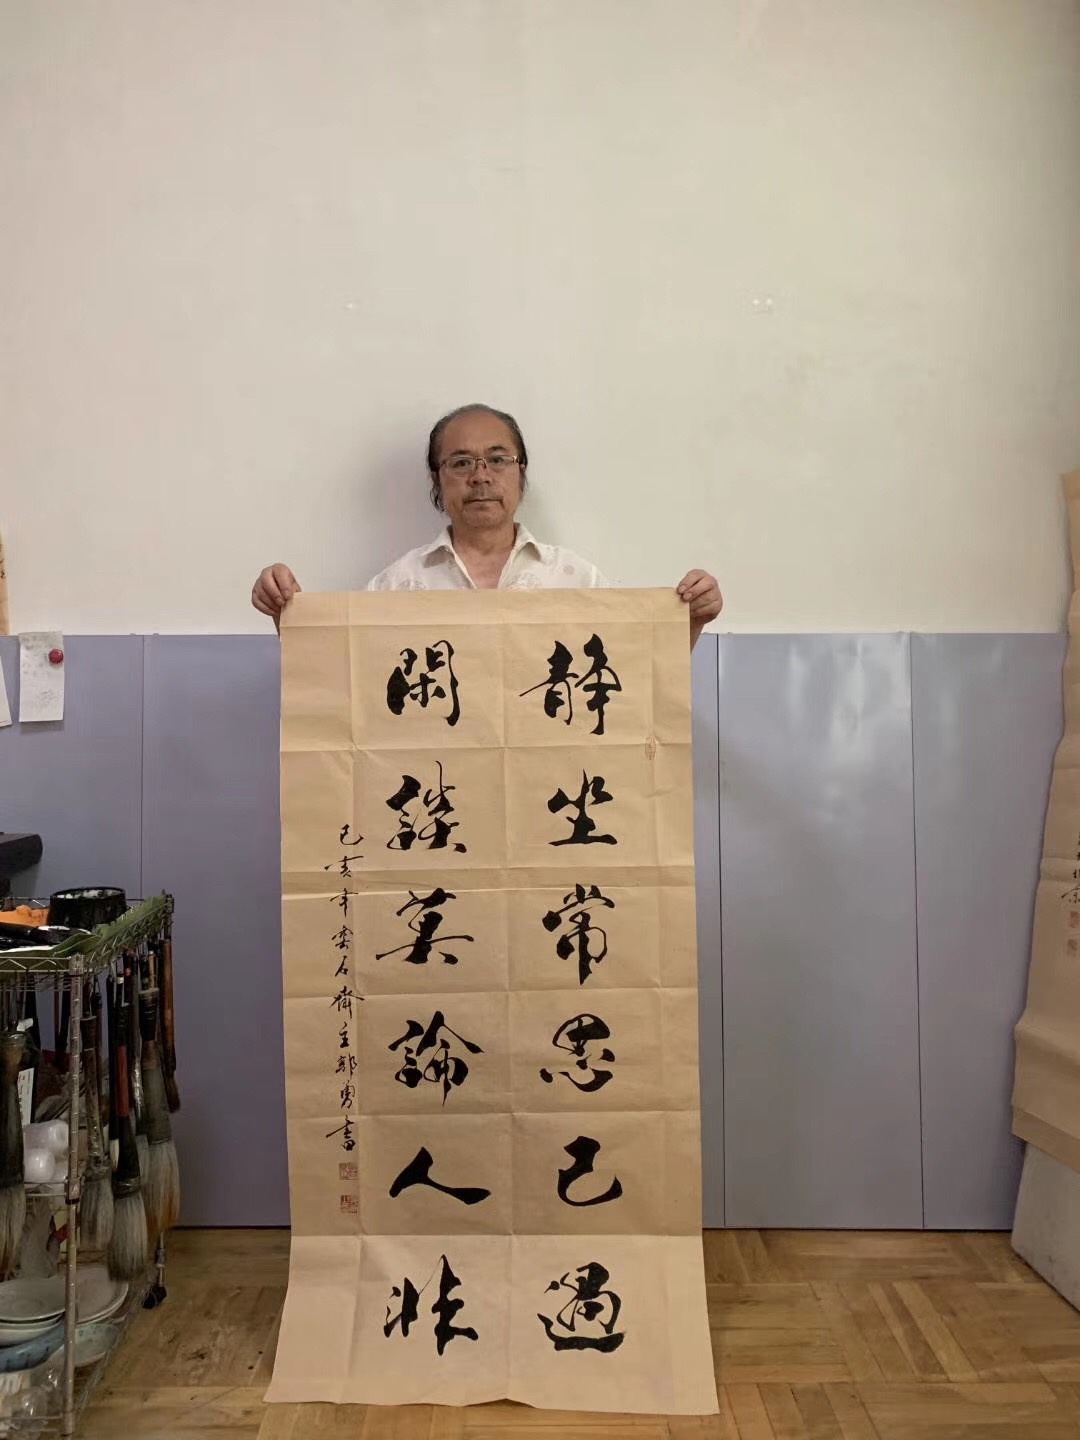 静坐常思己過
閑談莫論人非
己亥年雲石齋主郭勇書
北京